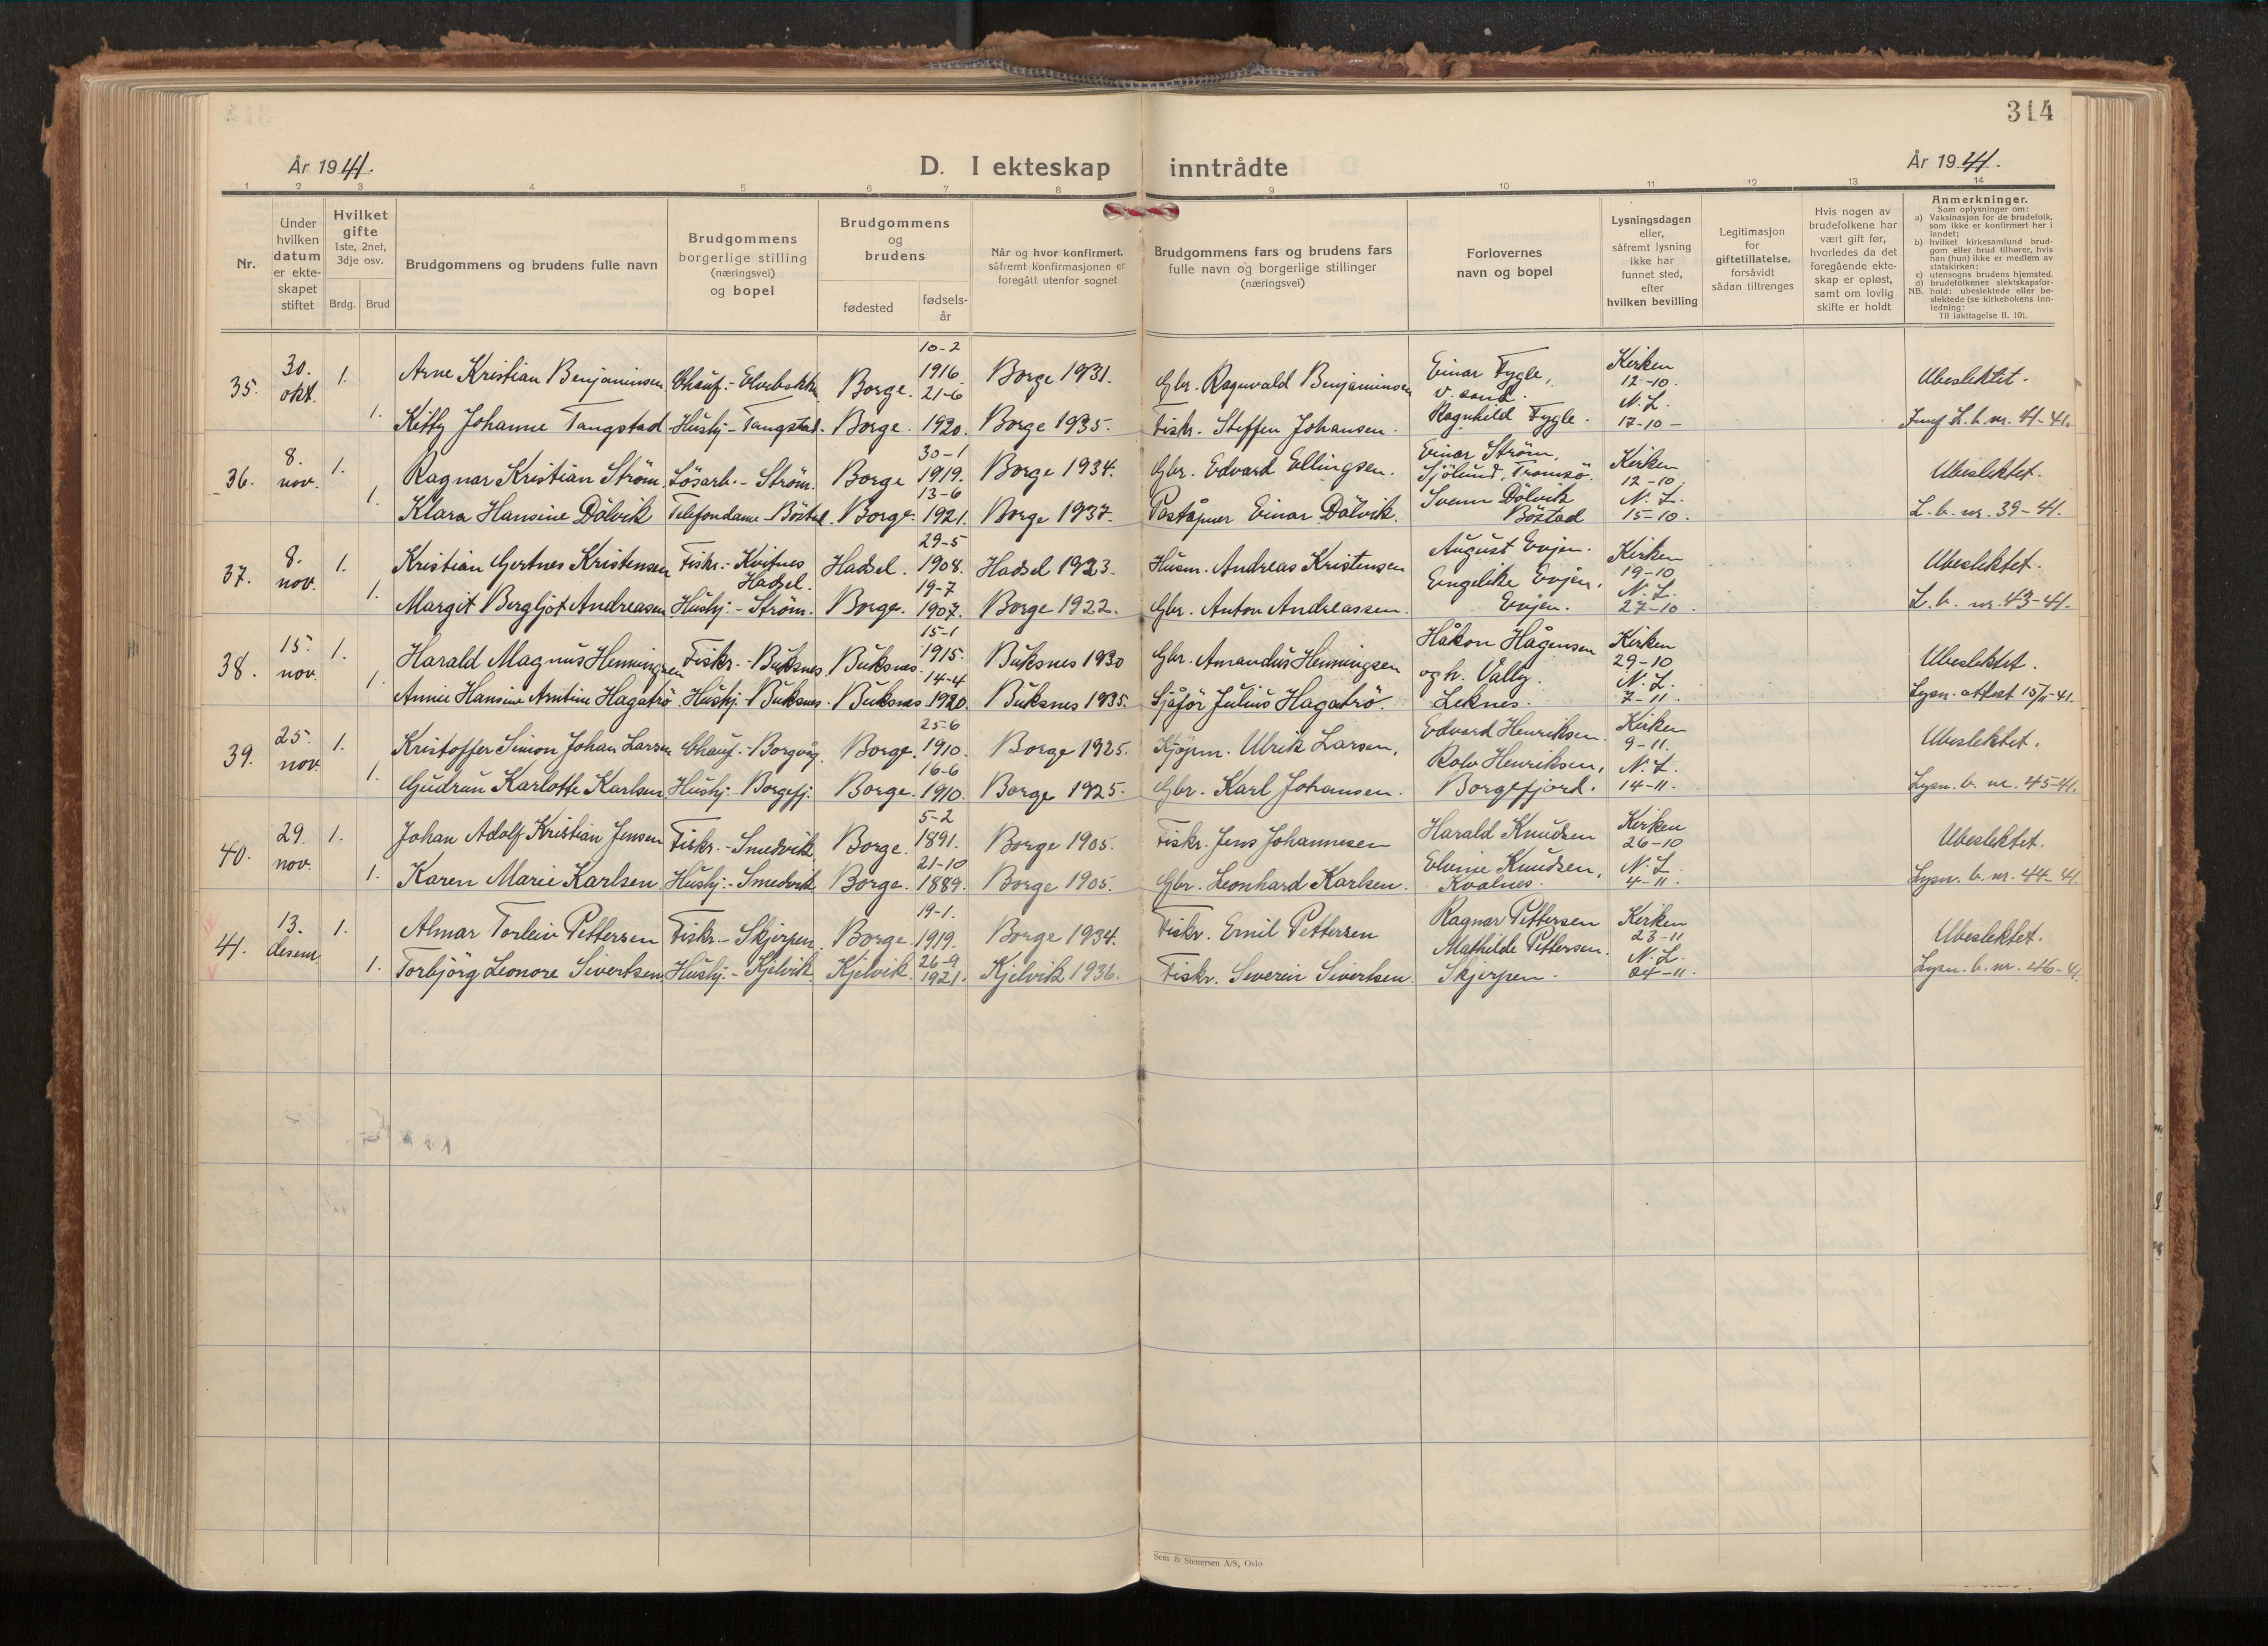 314
År 1941.
D. I ekteskap inntrådte
År 1941.
1 2 3 4 5 6 7 8 9 10 11 12 13 14
Nr.
Under hvilken datum er ekte-skapet stiftet
Hvilket gifte 1ste, 2net, 3dje osv.
Brdg. Brud
Brudgommens og brudens fulle navn
Brudgommens borgerlige stilling (næringsvei) og bopel
Brudgommens og brudens
fødested
fødsels-år
Når og hvor konfirmert, såfremt konfirmasjonen er foregått utenfor sognet
Brudgommens fars og brudens fars fulle navn og borgerlige stillinger (næringsvei)
Forlovernes navn og bopel
Lysningsdagen eller, såfremt lysning ikke har funnet sted, efter hvilken bevilling
Legitimasjon for giftetillatelse, forsåvidt sådan tiltrenges
Hvis nogen av brudefolkene har vært gift før, hvorledes da det foregående ekte-skap er opløst, samt om lovlig skifte er holdt
Anmerkninger.
Som oplysninger om:
a) Vaksinasjon for de brudefolk, som ikke er konfirmert her i landet;
b) hvilket kirkesamfund brud-gom eller brud tilhører, hvis han (hun) ikke er medlem av statskirken;
c) utensogns brudens hjemsted.
d) brudefolkenes slektskapsfor-hold: ubeslektede eller be-slektede (se kirkebokens inn-ledning:
NB. Til iakttagelse II. 10).
35. 30. okt. 1. Arne Kristian Benjaminsen Chauf.- Elvebakken Borge. 10-2 1916. Borge 1931. Gbr. Ragnvald Benjaminsen Einar Fygle, v. sand. Kirken 12-10. Ubeslektet.
1. Kitty Johanne Tangstad Hushj- Tangstad. Borge. 21-6 1920. Borge 1935. Fiskr. Steffen Johansen. Ragnhild Fygle. N. L. 17-10- L. b. nr. 41-41.
36. 8. nov. 1. Ragnar Kristian Strøm Løsarb.- Strøm. Borge 30-1 1919. Borge 1934. Gbr. Edvard Ellingsen. Einar Strøm, Sjølund, Tromsø. Kirken 12-10. Ubeslektet.
1. Klara Hansine Dølvik Telefondame- Bøstad. Borge. 13-6 1921. Borge 1937. Poståpner Einar Dølvik. Svenn Dølvik Bøstad N. L. 15-10. L. b. nr. 39-41.
37. 8. nov. 1. Kristian Gertnes Kristensen Fiskr.- Kvitnes Hadsel. Hadsel. 29-5 1908. Hadsel 1923. Husm. Andreas Kristensen August Evjen. Kirken 19-10 Ubeslektet.
1. Margit Bergljot Andreasen Hushj.- Strøm. Borge. 19-7 1907. Borge 1922. Gbr. Anton Andreassen. Engelike Evjen, Evjen. N. L. 27-10. L. b. nr. 43-41.
38. 15. nov. 1. Harald Magnus Henningsen Fiskr.- Buksnes Buksnes. 15-1 1915. Buksnes 1930 Gbr. Amandus Henningsen Håkon Hågensen Kirken 29-10 Ubeslektet.
1. Annie Hansine Arntine Hagatrø Hushj.- Buksnes. Buksnes 14-4 1920. Buksnes 1935. Sjåfør Julius Hagatrø. og h. Vally. Leknes. N. L. 7-11. Lysn. attest 15/11-41.
39. 25. nov. 1. Kristoffer Simon Johan Larsen Chauf.- Borgvåg. Borge. 25-6 1910. Borge 1925. Kjøpm. Ulrik Larsen, Edvard Henriksen. Kirken 9-11. Ubeslektet.
1. Gudrun Karlotte Karlsen Hushj.- Borgefj. Borge. 16-6 1910. Borge 1925. Gbr. Karl Johansen. Rolv Henriksen, Borgefjord. N. L. 14-11. Lysn. b. nr. 45-41.
40. 29. nov. 1. Johan Adolf Kristian Jensen Fiskr.- Smedvik Borge. 5-2 1891. Borge 1905. Fiskr. Jens Johannesen Harald Knudsen Kirken 26-10 Ubeslektet.
1. Karen Marie Karlsen Hushj.- Smedvik Borge. 21-10 1889. Borge 1905. Gbr. Leonhard Karlsen. Elvine Knudsen, Kvalnes. N. L. 4-11. Lysn. b. nr. 44-41.
41. 13. desem. 1. Almar Torleiv Pettersen Fiskr.- Skjerpen. Borge. 19-1. 1919. Borge 1934. Fiskr. Emil Pettersen Ragnar Pettersen Kirken 23-11 Ubeslektet.
1. Torbjørg Leonore Sivertsen Hushj.- Kjelvik. Kjelvik. 26-9 1921. Kjelvik 1936. Fiskr. Severin Sivertsen. Mathilde Pettersen. Skjerpen. N. L. 24-11. Lysn. b. nr. 46-41.
Sem & Stenersen A/S, Oslo